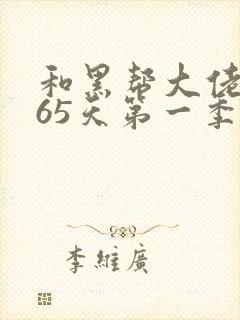 和黑帮大佬
65天第一季
李維廣